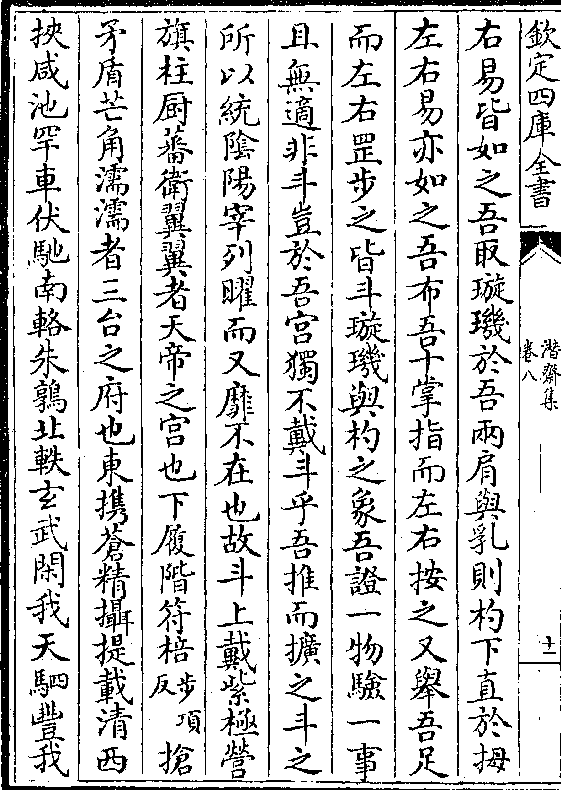 欽定四庫全書
潛齋集
卷八
十一
右易皆如之吾取璇璣於吾兩肩與乳則杓下直於拇
左右易亦如之吾布吾十掌指而左右按之又舉吾足
而左右罡步之皆斗璇璣與杓之象吾證一物驗一事
且無適非斗豈於吾宮獨不戴斗乎吾推而擴之斗之
所以統隂陽宰列曜而又靡不在也故斗上戴紫極營
旗柱厨蕃衛翼翼者天帝之宮也下履階符棓步項反搶
矛盾芒角濡濡者三台之府也東携蒼精攝提載清西
挾咸池罕車伏馳南輅朱鶉北軼玄武閑我天駟豐我